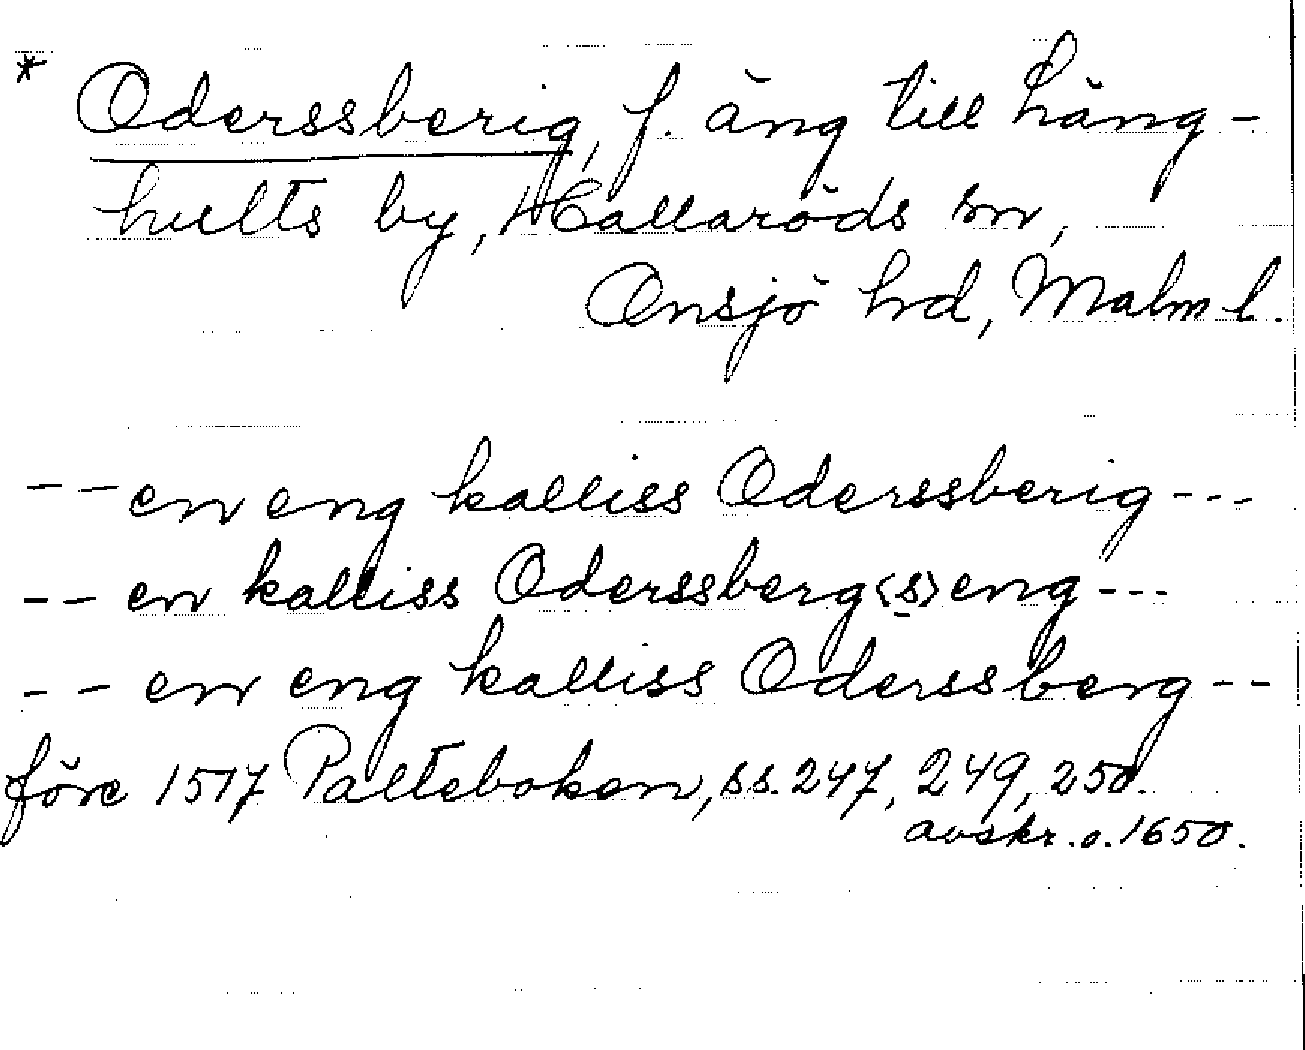 * Oderssberig, f. äng till Häng-
hults by, Hallaröds sn,
Onsjö hd, Malm l.
-- en eng kalliss Oderssberig ---
-- en kalliss Oderssberg<s>eng ---
-- en eng kalliss Oderssberg --
före 1517 Palteboken, ss. 247, 249, 250.
avskr. o. 1650.